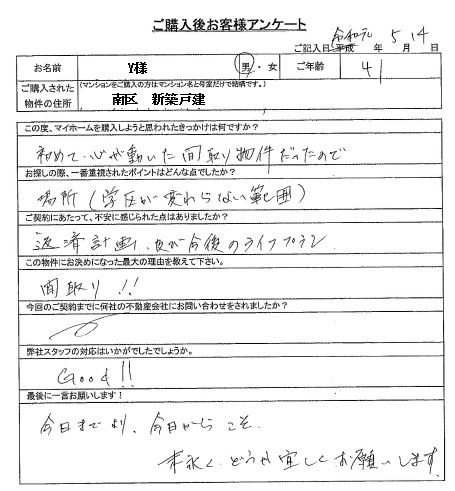 ご購入後お客様アンケート
令和元 5 14
ご記入日 平成 年 月 日
お名前 Y様 男・女 ご年齢 41
ご購入された物件の住所
(マンションをご購入の方はマンション名と号室だけで結構です。)
南区 新築戸建
この度、マイホームを購入しようと思われたきっかけは何ですか?
初めて心が動いた間取り物件だったので
お探しの際、一番重視されたポイントはどんな点でしたか?
場所(学区が変わらない範囲)
ご契約にあたって、不安に感じられた点はありましたか?
返済計画、及び今後のライフプラン
この物件にお決めになった最大の理由を教えて下さい。
間取り!!
今回のご契約までに何社の不動産会社にお問い合わせをされましたか?
弊社スタッフの対応はいかがでしたでしょうか。
Good!!
最後に一言お願いします!
今日までより、今日からこそ、
末永く、どうか宜しくお願いします。